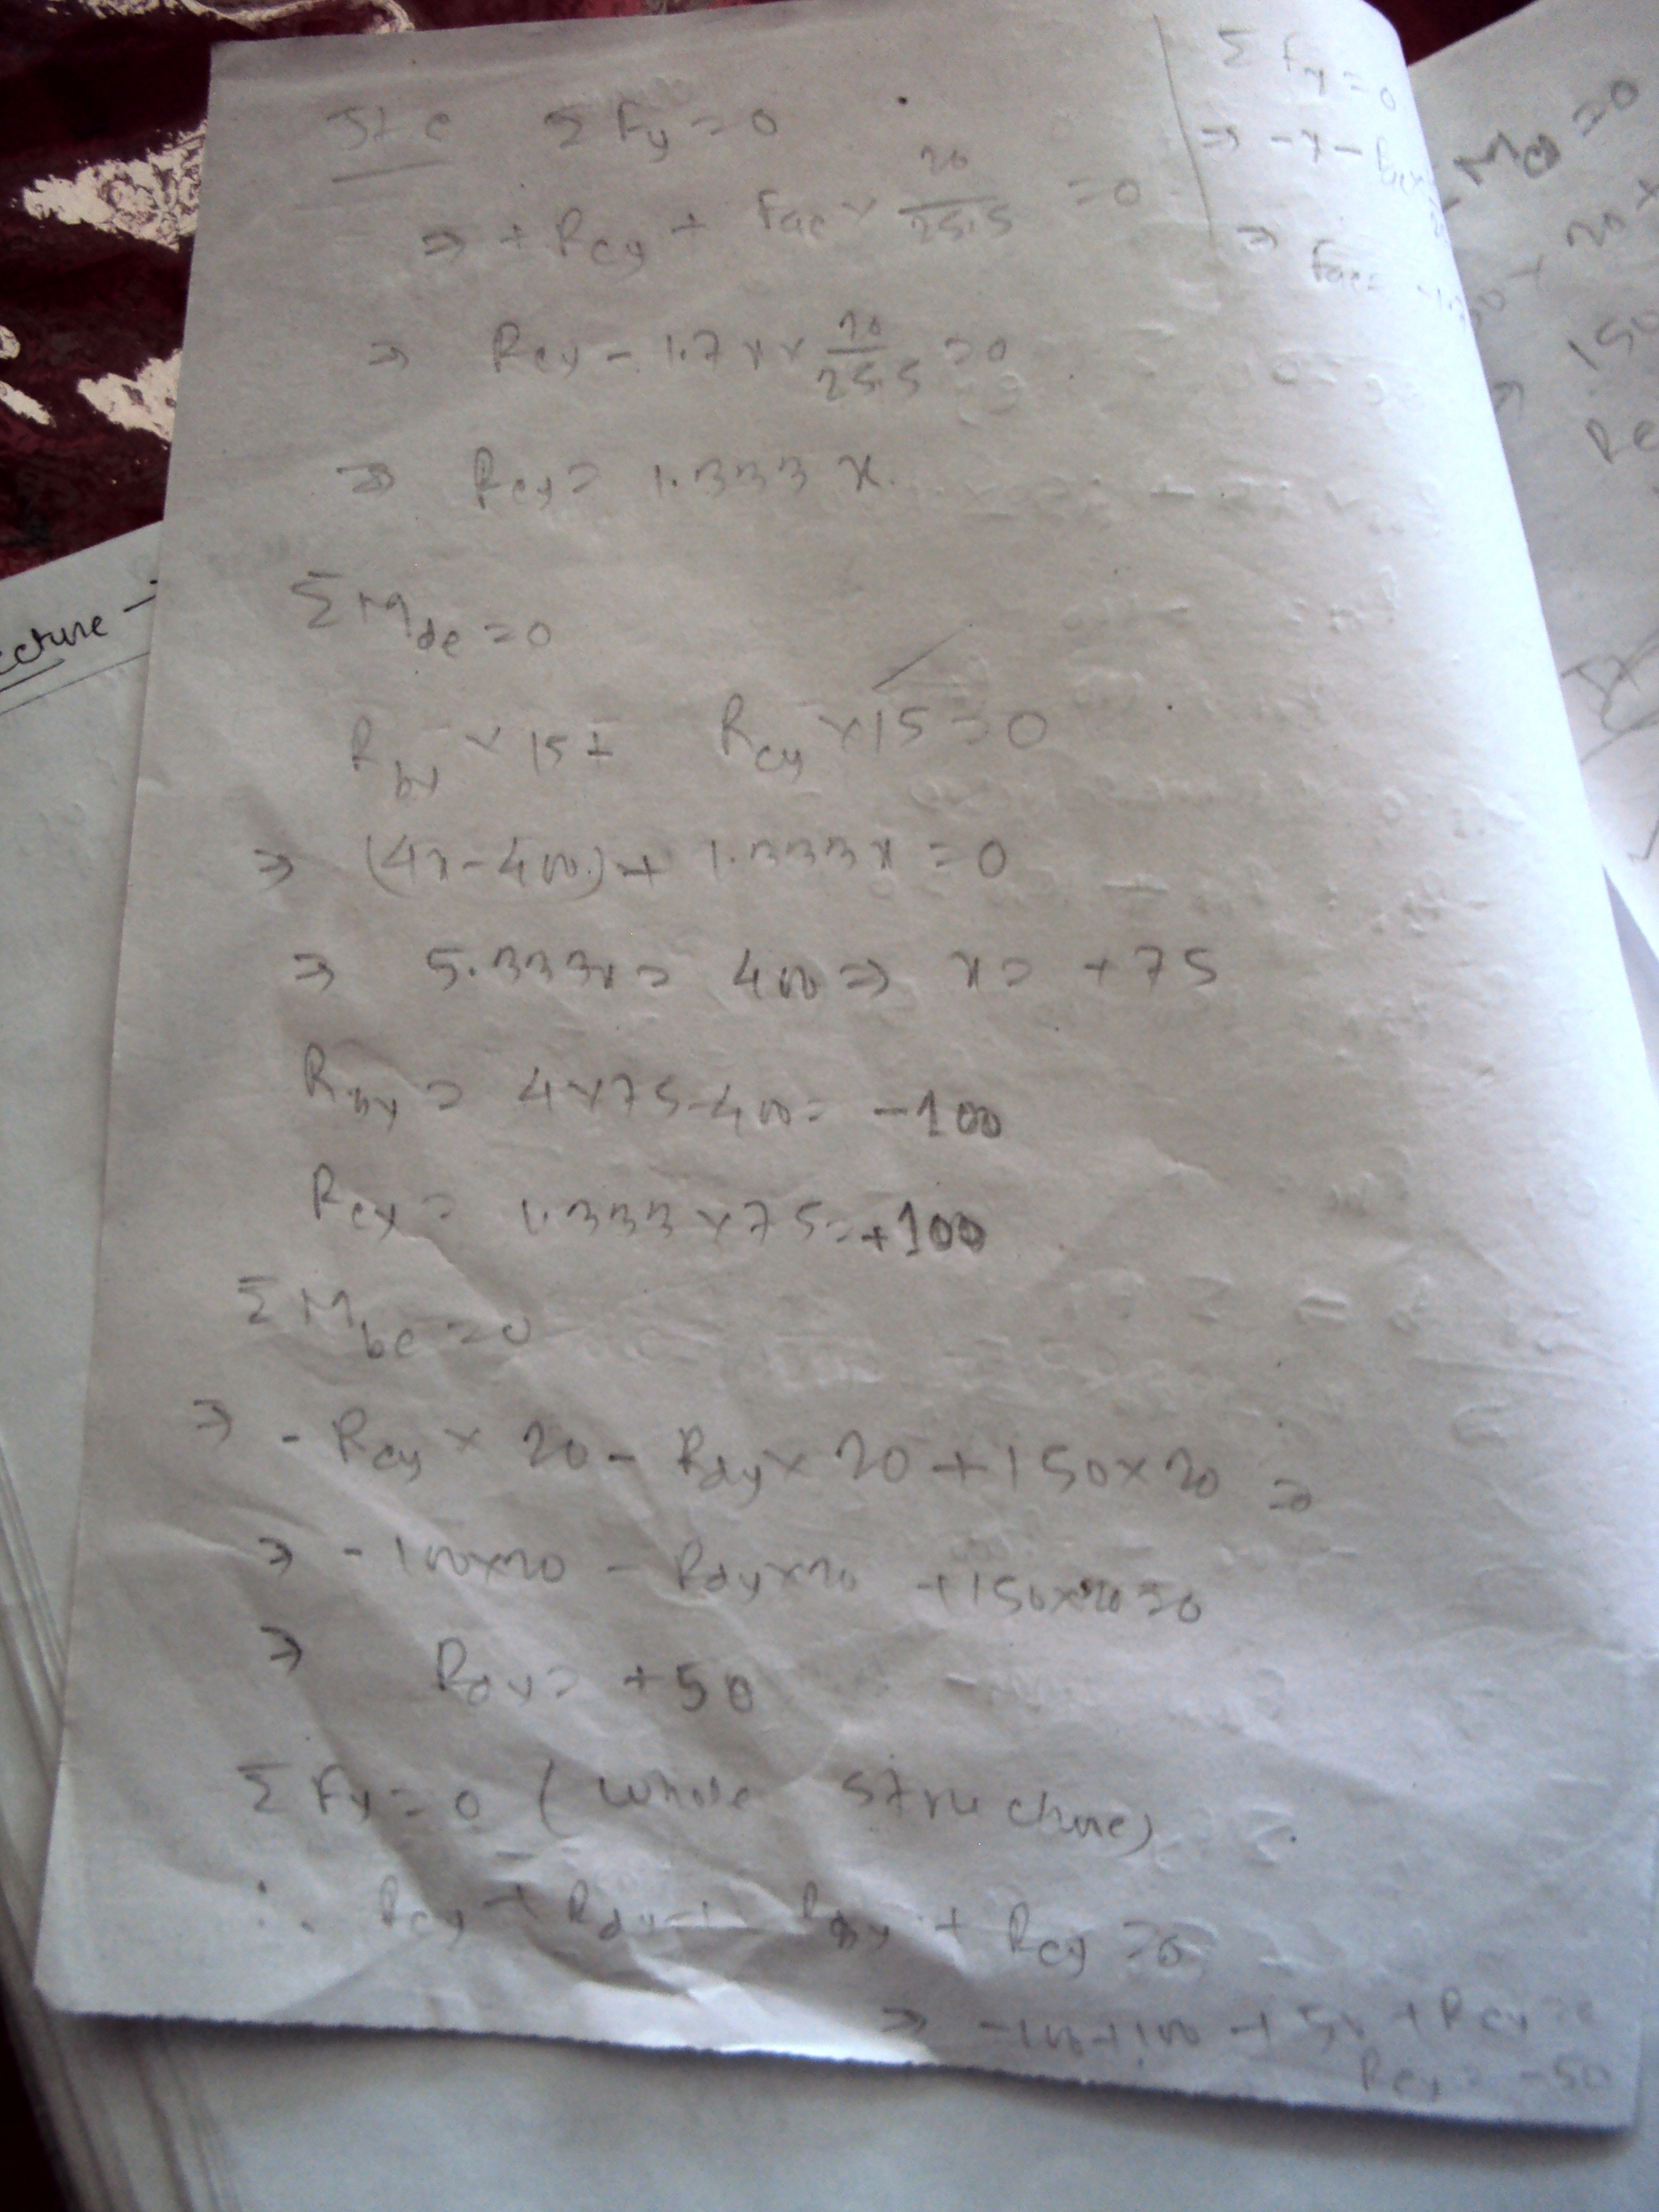 Jt c ΣFy = 0
⇒ + Rcy + Fac × 20/25.5 = 0
⇒ Rcy - 1.7x × 20/25.5 = 0
⇒ Rcy = 1.333 x.
ΣM de = 0
Rby × 15 + Rcy × 15 = 0
⇒ (4x - 400) + 1.333x = 0
⇒ 5.333x = 400 ⇒ x = +75
Rby = 4×75-400 = -100
Rcy = 1.333 × 75 = +100
ΣM be = 0
⇒ - Rcy × 20 - Rdy × 20 + 150×20 =0
⇒ - 100×20 - Rdy×20 +150×20=0
⇒ Rdy = +50
ΣFy = 0 (whole structure)
∴ Rey + Rdy + Rby + Rcy = 0
⇒ -100+100 + 50 + Rey =0
Rey = -50
ΣFx = 0
⇒ -x -
⇒ Fac =
= 0
20 ×
150
ecture -